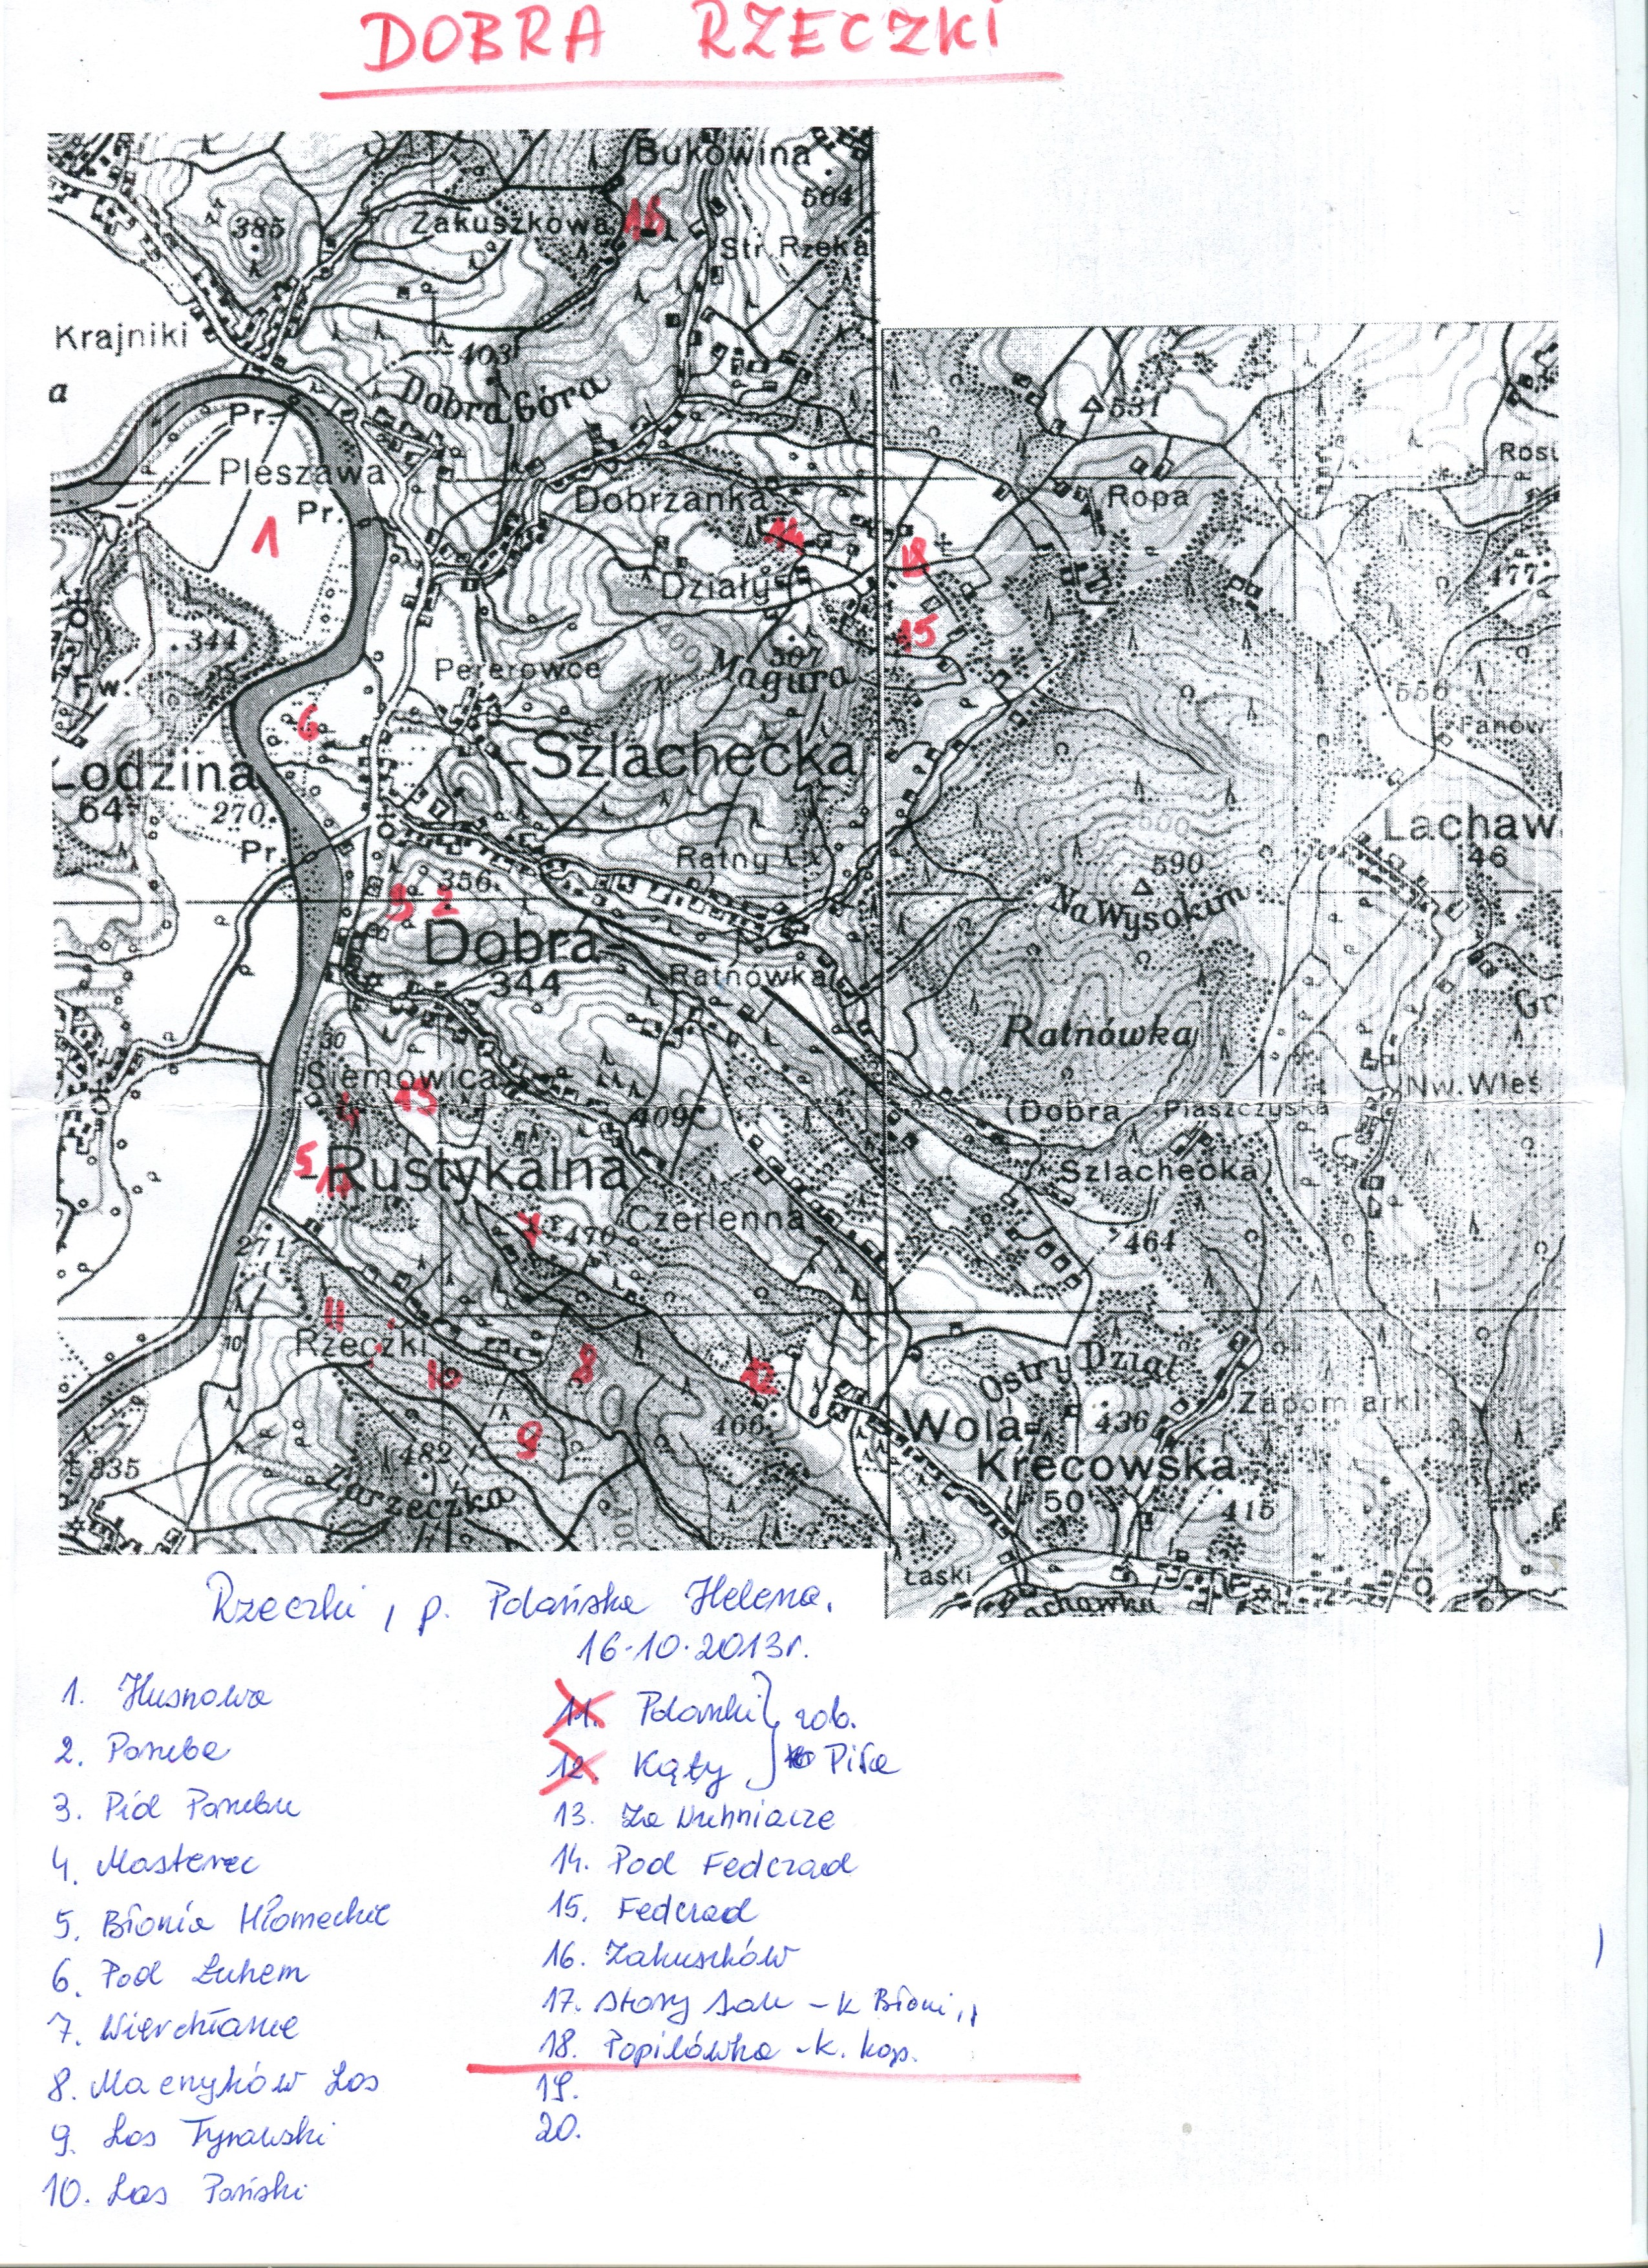 DOBRA RZECZKI
Bukowina
564
Zakuszkowa
16
385
Str. Rzeka
Krajniki
403
a
Dobra Góra
Pr.
531
Pleszawa
Rosu
Dobrzanka
Ropa
Pr.
1
14
18
Działy
477
15
344
507
Magura
Pererowce
Fw.
556
6
Fanow
Szlachecka
Łodzina
64
270
Lachaw
46
Pr.
Ratny
590
356
3 2
Na Wysokim
Dobra-
344
Ratnówka
Gr
Ratnówka
30
Siemowica
Nw. Wieś
4 13
409
(Dobra
Piaszczyska
5
-Rustykalna
Szlachecka)
Czerienna
7
470
464
271
11
Rzeczki
10
8
12
Ostry Dział
Zapomiarki
466
Wola-
436
9
482
Krecowska
335
Zarzeczka
50
416
Łaski
achawka
Rzeczki, p. Polańska Helena.
16-10-2013r.
1. Husnowa
2. Poruba
3. Pid Porubu
4. Masterec
5. Błonia Hłomeckie
6. Pod Łuhem
7. Wierchłanie
8. Macnyków Las
9. Las Tyrawski
10. Las Pański
11. Polanki } zob.
12. Kąty } Piła
13. Za Wuhniacze
14. Pod Fedczad
15. Fedczad
16. Zakuszków
17. Stary San - k Błoni
18. Popilówka - k. kop.
19.
20.